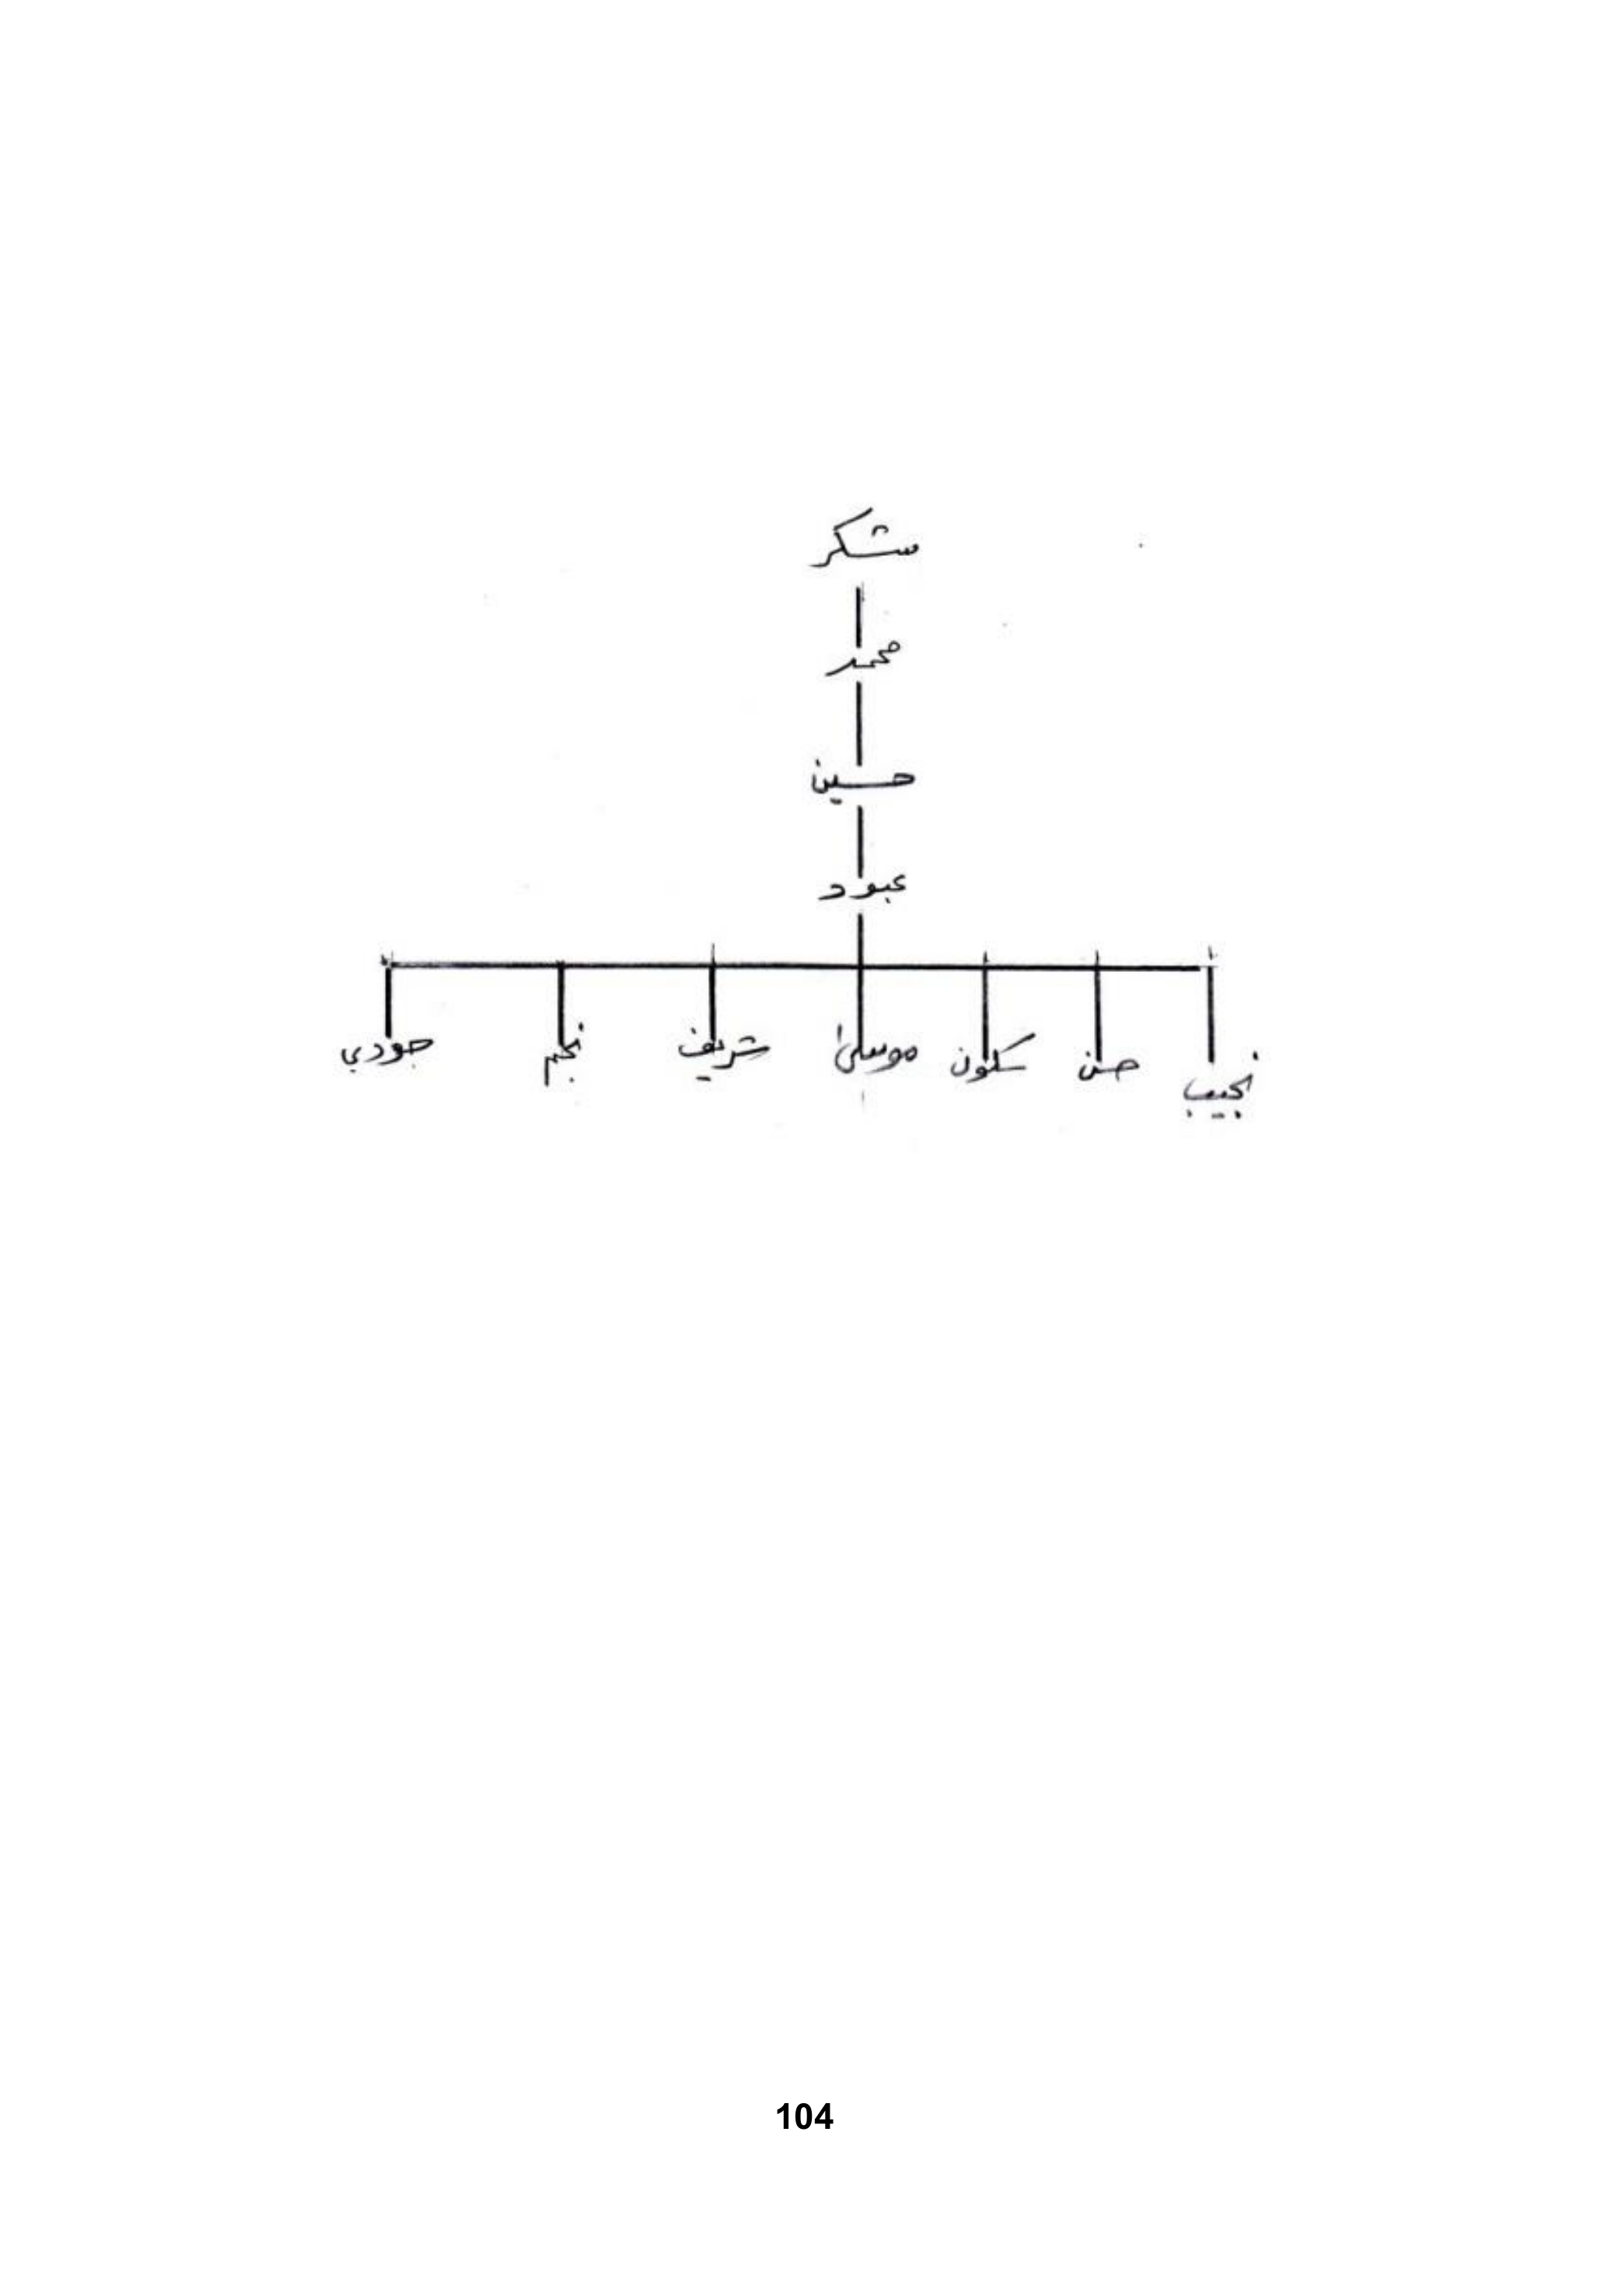 شكر
محمد
حسين
عبود
نجيب حسن سكون موسى شريف نجم جودي
104